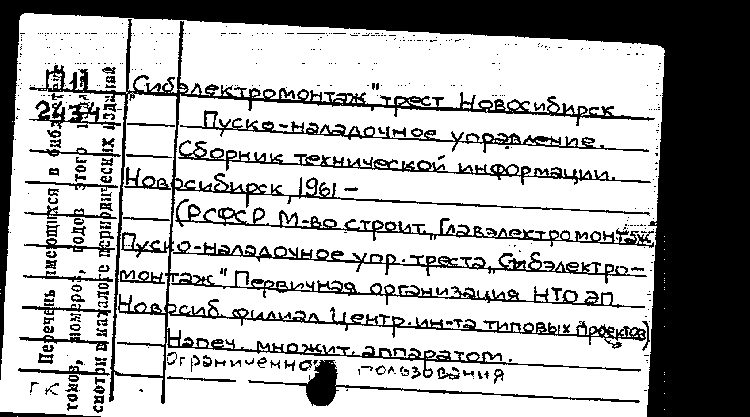 П11
2434
„Сибэлектромонтаж", трест Новосибирск.
Пуско-наладочное управление.
Сборник технической информации.
Новосибирск, 1961 –
(РСФСР. М-во строит. „Главэлектромонтаж".
Пуско-наладочное упр. треста „Сибэлектро-
монтаж". Первичная организация НТО эп.
Новосиб. филиал Центр. ин-та типовых проектов)
Напеч. множит. аппаратом.
Ограниченного пользования
Перечень имеющихся в библиотеке
томов, номеров, годов этого
смотри в каталоге периодических изданий
ГК